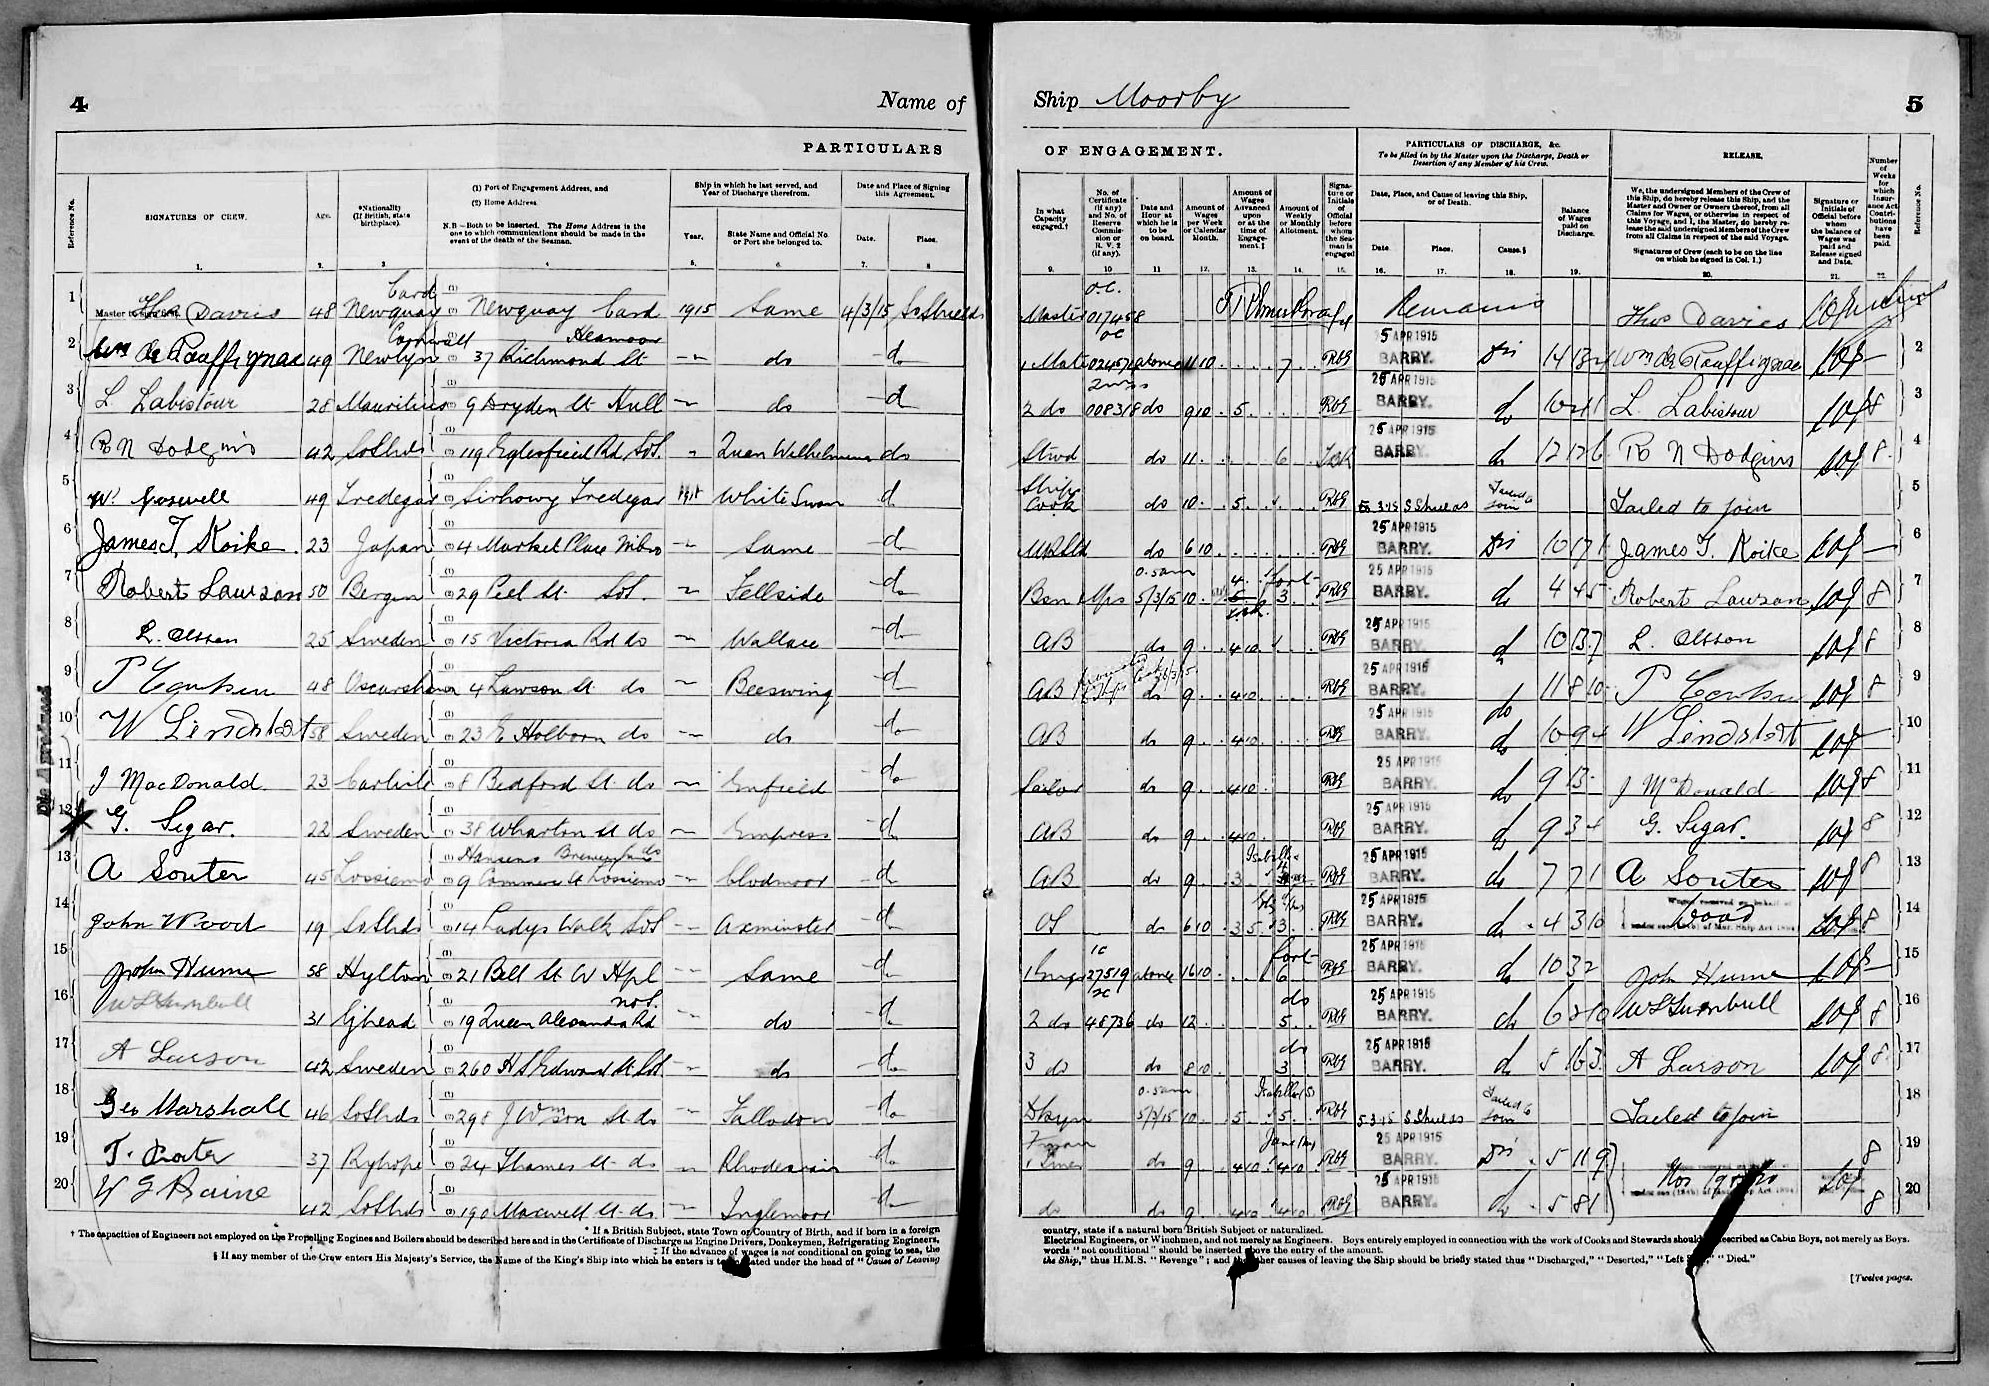 4
Name of
PARTICULARS
Reference No.
SIGNATURES OF CREW.
Age.
*Nationality (If British, state birthplace).
(1) Port of Engagement Address, and
(2) Home Address
N.B—Both to be inserted. The Home Address is the one to which communications should be made in the event of the death of the Seaman.
Ship in which he last served, and Year of Discharge therefrom.
Year.
State Name and Official No. or Port she belonged to.
Date and Place of Signing this Agreement.
Date.
Place.
1. 2. 3. 4. 5. 6. 7. 8
1 Master to sign first. Thos Davies 48 Newquay Card Newquay Card 1915 Same 4/3/15 So Shields
2 Wm de Rouffignac 49 Newlyn Cornwall 37 Richmond St Heamoor " do do
3 L Labistour 28 Mauritius 9 Dryden St Hull " do do
4 R N Dodgins 42 So Shds 119 Eglesfield Rd SoS. " Queen Wilhelmina do
5 W. 49 Tredegar Sirhowy Tredegar White Swan do
6 James T. Koike 23 Japan 4 Market Place Mbro " Same do
7 Robert Lawson 50 Bergen 29 Peel St. SoS. " Fellside do
8 L. Olsson 25 Sweden 15 Victoria Rd do " Wallace do
9 48 4 Lawson St do " Beeswing do
10 W Lindstedt 58 Sweden 23 E Holborn do " do do
11 J MacDonald. 23 Carlisle 8 Bedford St do " Enfield do
12 G. Segar. 22 Sweden 38 Wharton St do " Empress do
13 A Souter 45 Lossiemo 9 Commerce St Lossiemo do
14 John Wood 19 So Shds 14 Ladys Walk SoS " Axminster do
15 John Hume 58 Hylton 21 Bell St W Hpl " Same do
16 W S Turnbull 31 Ghead 19 Queen Alexandra Rd NoS. " do do
17 A Larson 42 Sweden 260 H S Edward St SoS " do do
18 Geo Marshall 46 So Shds 298 J Wmson St do " Fallodon do
19 T. Porter 37 Ryhope 24 Thames St do " Rhodesian do
20 W G Raine 42 So Shds 190 Maxwell St do " Inglemoor do
Die Apprehend
* If a British Subject, state Town or Country of Birth, and if born in a foreign
† The capacities of Engineers not employed on the Propelling Engines and Boilers should be described here and in the Certificate of Discharge as Engine Drivers, Donkeymen, Refrigerating Engineers,
‡ If the advance of wages is not conditional on going to sea, the
§ If any member of the Crew enters His Majesty's Service, the Name of the King's Ship into which he enters is to be stated under the head of "Cause of Leaving
Ship Moorby
5
OF ENGAGEMENT.
In what Capacity engaged.†
No. of Certificate (if any) and No. of Reserve Commission or R. V. 2 (if any).
Date and Hour at which he is to be on board.
Amount of Wages per Week or Calendar Month.
Amount of Wages Advanced upon or at the time of Engagement.‡
Amount of Weekly or Monthly Allotment.
Signature or Initials of Official before whom the Seaman is engaged
PARTICULARS OF DISCHARGE, &c.
To be filled in by the Master upon the Discharge, Death or Desertion of any Member of his Crew.
Date, Place, and Cause of leaving this Ship, or of Death.
Date.
Place.
Cause.§
Balance of Wages paid on Discharge.
RELEASE.
We, the undersigned Members of the Crew of this Ship, do hereby release this Ship, and the Master and Owner or Owners thereof, from all Claims for Wages, or otherwise in respect of this Voyage, and I, the Master, do hereby release the said undersigned Members of the Crew from all Claims in respect of the said Voyage.
Signatures of Crew (each to be on the line on which he signed in Col. 1.)
Signature or Initials of Official before whom the balance of Wages was paid and Release signed and Date.
Number of Weeks for which Insurance Act Contributions have been paid.
Reference No.
9. 10 11 12. 13. 14. 15. 16. 17. 18. 19. 20. 21. 22.
Master O.C. 017458 Remains Thos Davies
1 Mate OC 02457 at once 11 10 7 5 APR 1915 BARRY. Dis Wm de Rouffignac 2
2 do 008318 do 9 10 5 25 APR 1915 BARRY. do L. Labistour 8 3
Stwd do 11 6 25 APR 1915 BARRY. do 12 12 6 R N Dodgins 8 4
Ships Cook do 10 5 5.3.15 S Shields Failed to join Failed to join 5
do 6 10 25 APR 1915 BARRY. Dis 10 17 1 James T. Koike 6
Bsn 0.5am 5/3/15 10 3 25 APR 1915 BARRY. do 4 4 5 Robert Lawson 8 7
AB do 9 4 10 25 APR 1915 BARRY. do 10 13 7 L. Olsson 8 8
AB do 9 4 10 25 APR 1915 BARRY. do 11 8 10 8 9
AB do 9 4 10 25 APR 1915 BARRY. do 10 9 4 W Lindstedt 10
Sailor do 9 4 10 25 APR 1915 BARRY. do 9 13 J McDonald 8 11
AB do 9 4 10 25 APR 1915 BARRY. do 9 3 4 G. Segar. 8 12
AB do 9 3 Isabella 25 APR 1915 BARRY. do 7 7 1 A Souter 8 13
OS do 6 10 3 5 3 25 APR 1915 BARRY. do 4 3 10 Wages received on behalf of Wood 8 14
1 Engr 1C 27519 at once 16 10 6 25 APR 1915 BARRY. do 10 3 2 John Hume 15
2 do 2C 48736 do 12 do 5 25 APR 1915 BARRY. do 6 2 10 W S Turnbull 8 16
3 do do 8 10 do 3 25 APR 1915 BARRY. do 5 16 3 A Larson 8 17
Dkyn 0.5am 5/3/15 10 5 Isabella (S) 5 5.3.15 S Shields Failed to join Failed to join 18
Fireman do 9 4 10 4 10 25 APR 1915 BARRY. Dis 5 11 9 8 19
do do 9 4 10 4 10 25 APR 1915 BARRY. do 5 8 1 Nos 19 & 20 8 20
country, state if a natural born British Subject or naturalized.
Electrical Engineers, or Winchmen, and not merely as Engineers. Boys entirely employed in connection with the work of Cooks and Stewards should be described as Cabin Boys, not merely as Boys.
words "not conditional" should be inserted above the entry of the amount.
the Ship," thus H.M.S. "Revenge"; and the other causes of leaving the Ship should be briefly stated thus "Discharged," "Deserted," "Left Sick," "Died."
[Twelve pages.